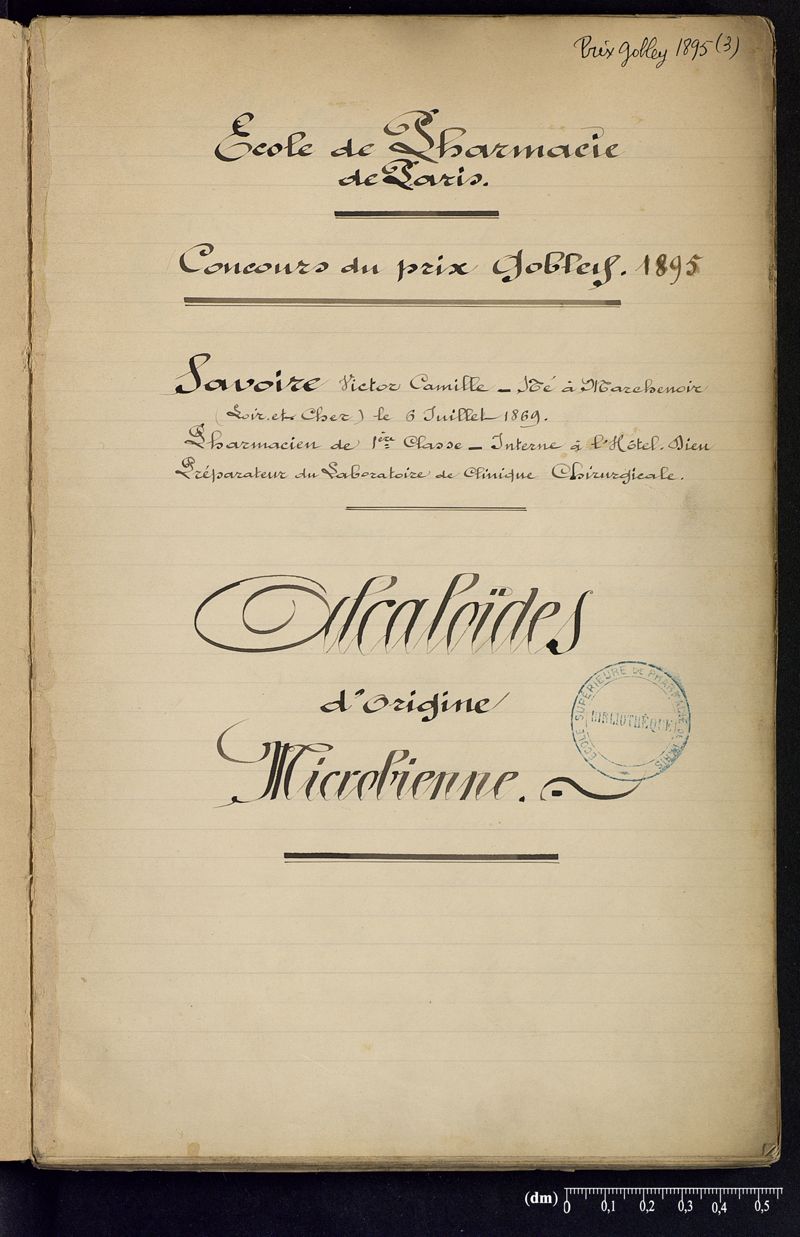 Prix Gobley 1895 (3)
Ecole de Pharmacie
de Paris.
Concours du prix Gobley. 1895
Savoire Victor Camille – Né à Marchenoir
(Loir. et Cher) le 6 Juillet 1869.
Pharmacien de 1ère Classe – Interne à l'Hôtel-Dieu
Préparateur du Laboratoire de Clinique Chirurgicale.
Alcaloïdes
d'Origine
Microbienne.
ECOLE SUPÉRIEURE DE PHARMACIE DE PARIS
BIBLIOTHÈQUE
(dm) 0 0,1 0,2 0,3 0,4 0,5